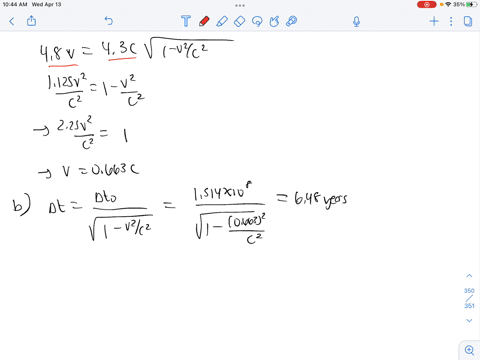 10:44 AM Wed Apr 13
35%
4.8 v = 4.3c √(1-v²/c²)
1.125v²/c² = 1 - v²/c²
→ 2.25v²/c² = 1
→ v = 0.663 c
b) Δt = Δt₀/√(1-v²/c²) = 1.514×10⁸/√(1-(0.663)²/c²) = 6.48 years
350/351